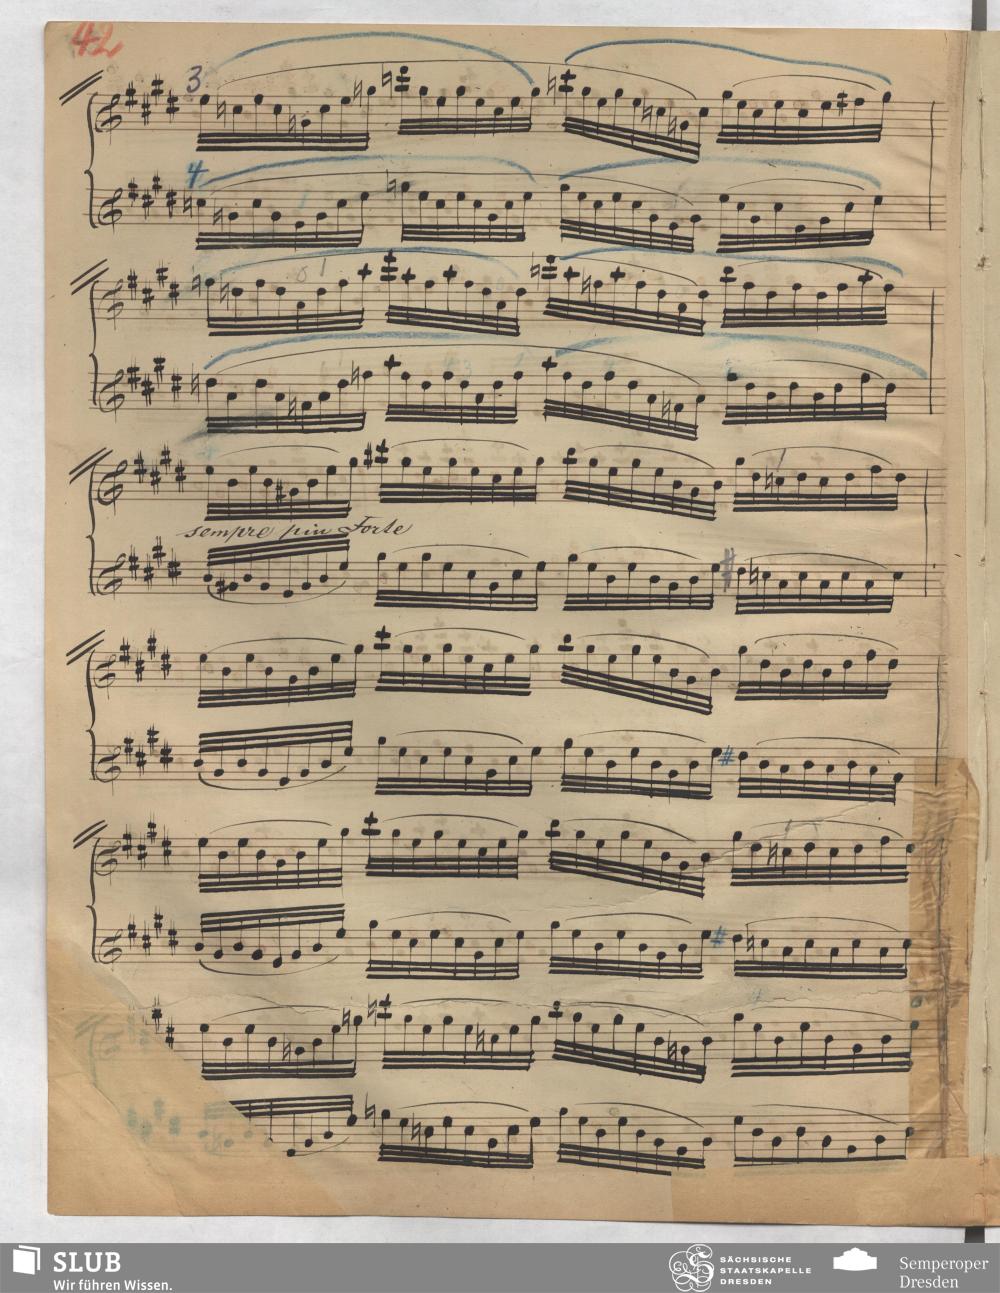 42
3
4
1
sempre piu Forte
SLUB
Wir führen Wissen.
SÄCHSISCHE
STAATSKAPELLE
DRESDEN
Semperoper
Dresden